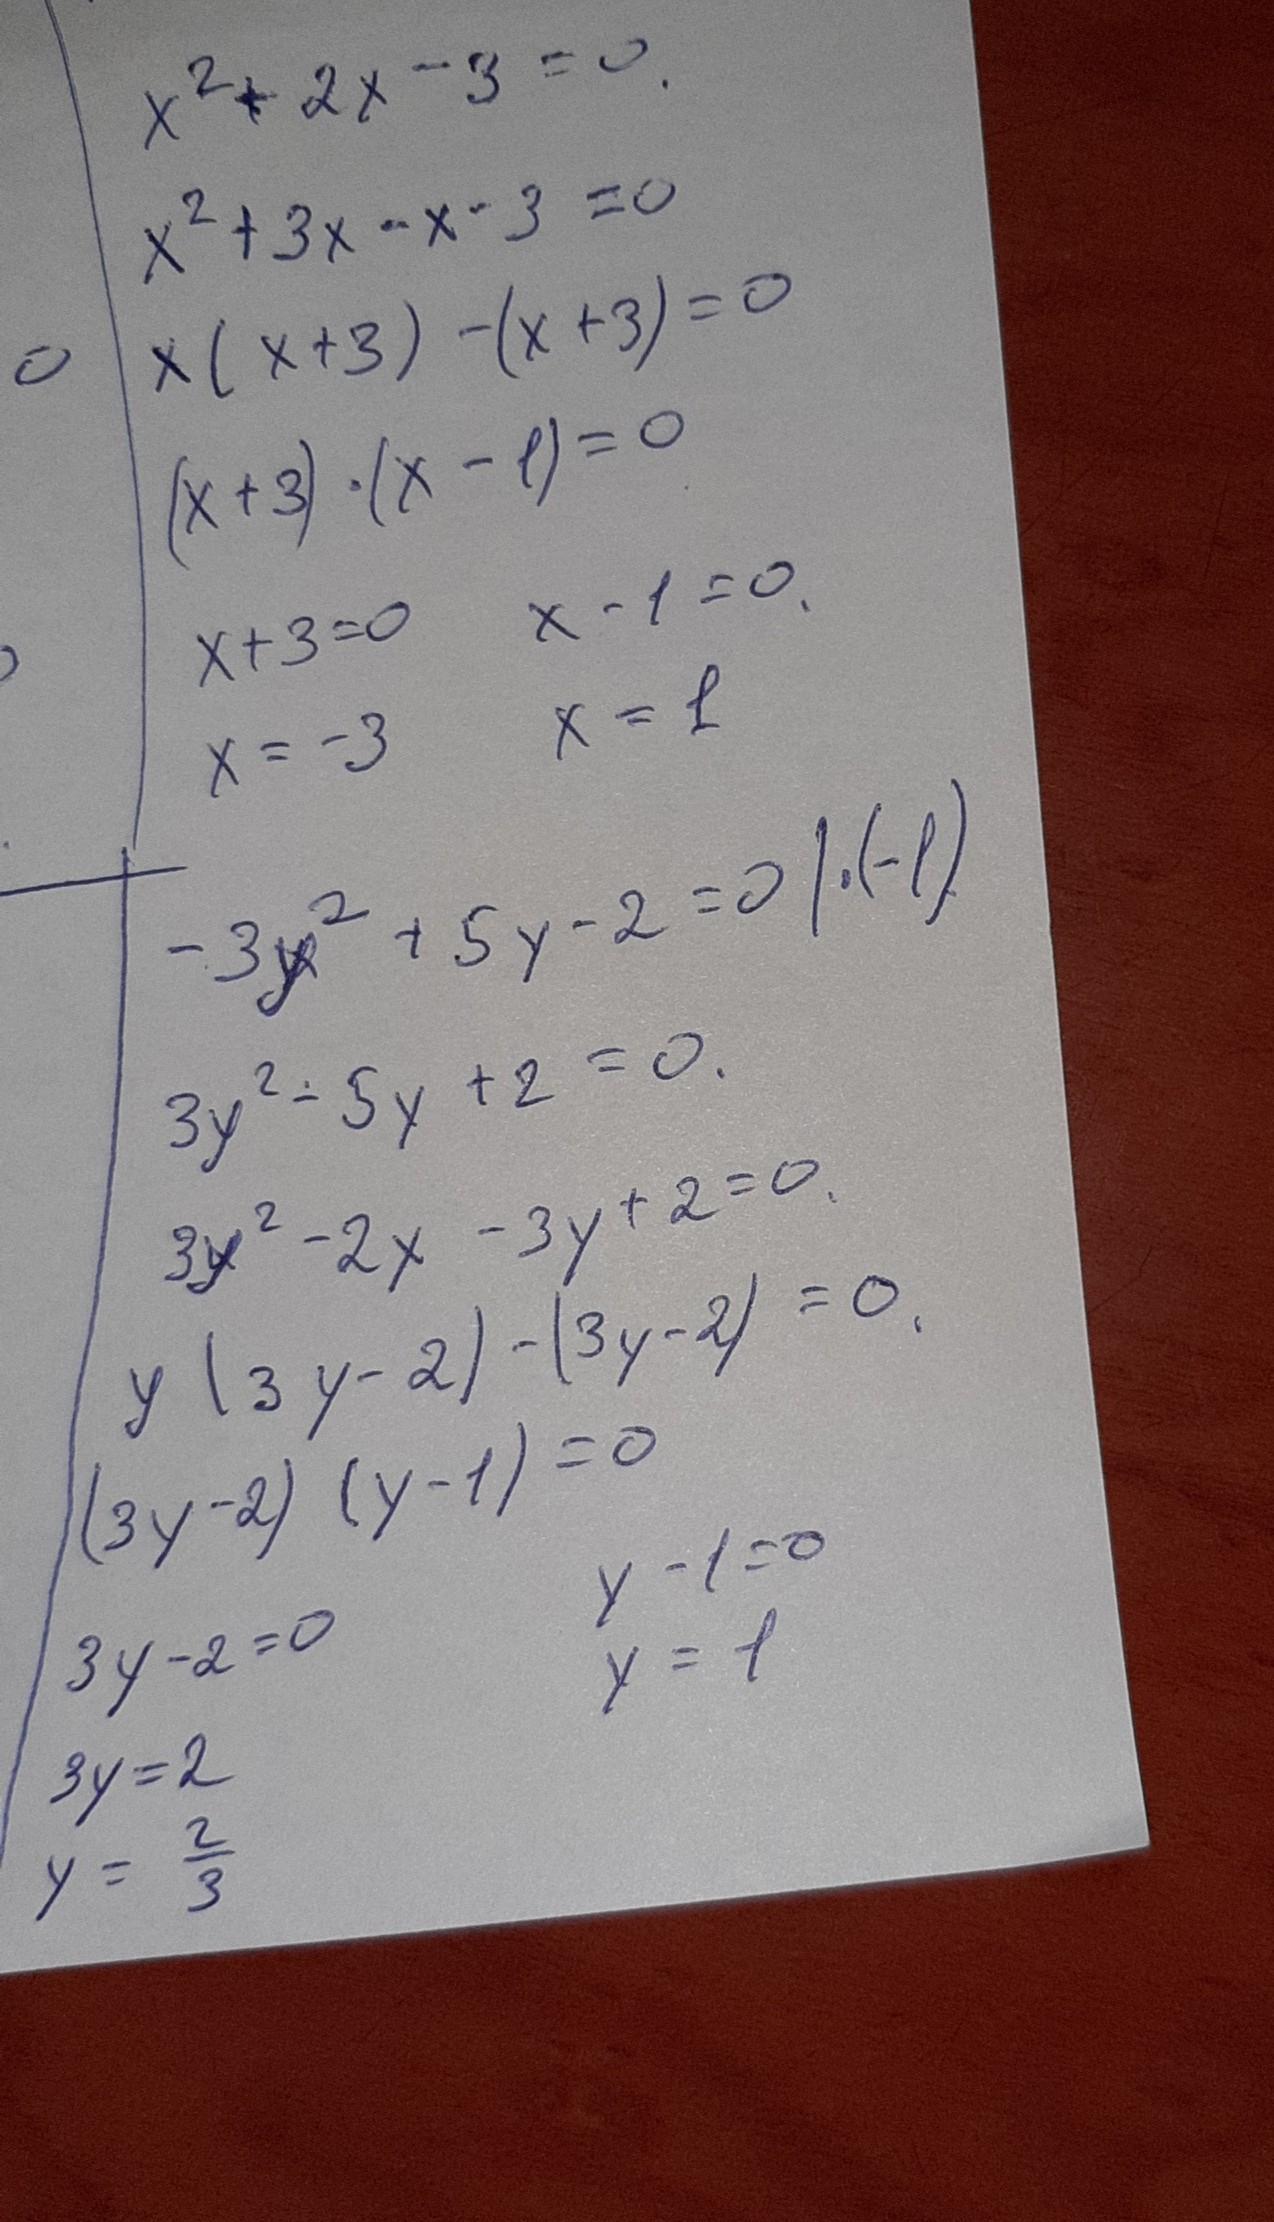 x² + 2x - 3 = 0.
x² + 3x - x - 3 = 0
0
x(x+3) - (x+3) = 0
(x+3)·(x-1) = 0
x+3=0 x-1=0.
x = -3 x = 1
-3y² + 5y - 2 = 0 |·(-1)
3y² - 5y + 2 = 0.
3y² - 2y - 3y + 2 = 0.
y(3y-2) - (3y-2) = 0.
(3y-2) (y-1) = 0
3y-2=0 y-1=0
3y=2 y = 1
y = 2/3